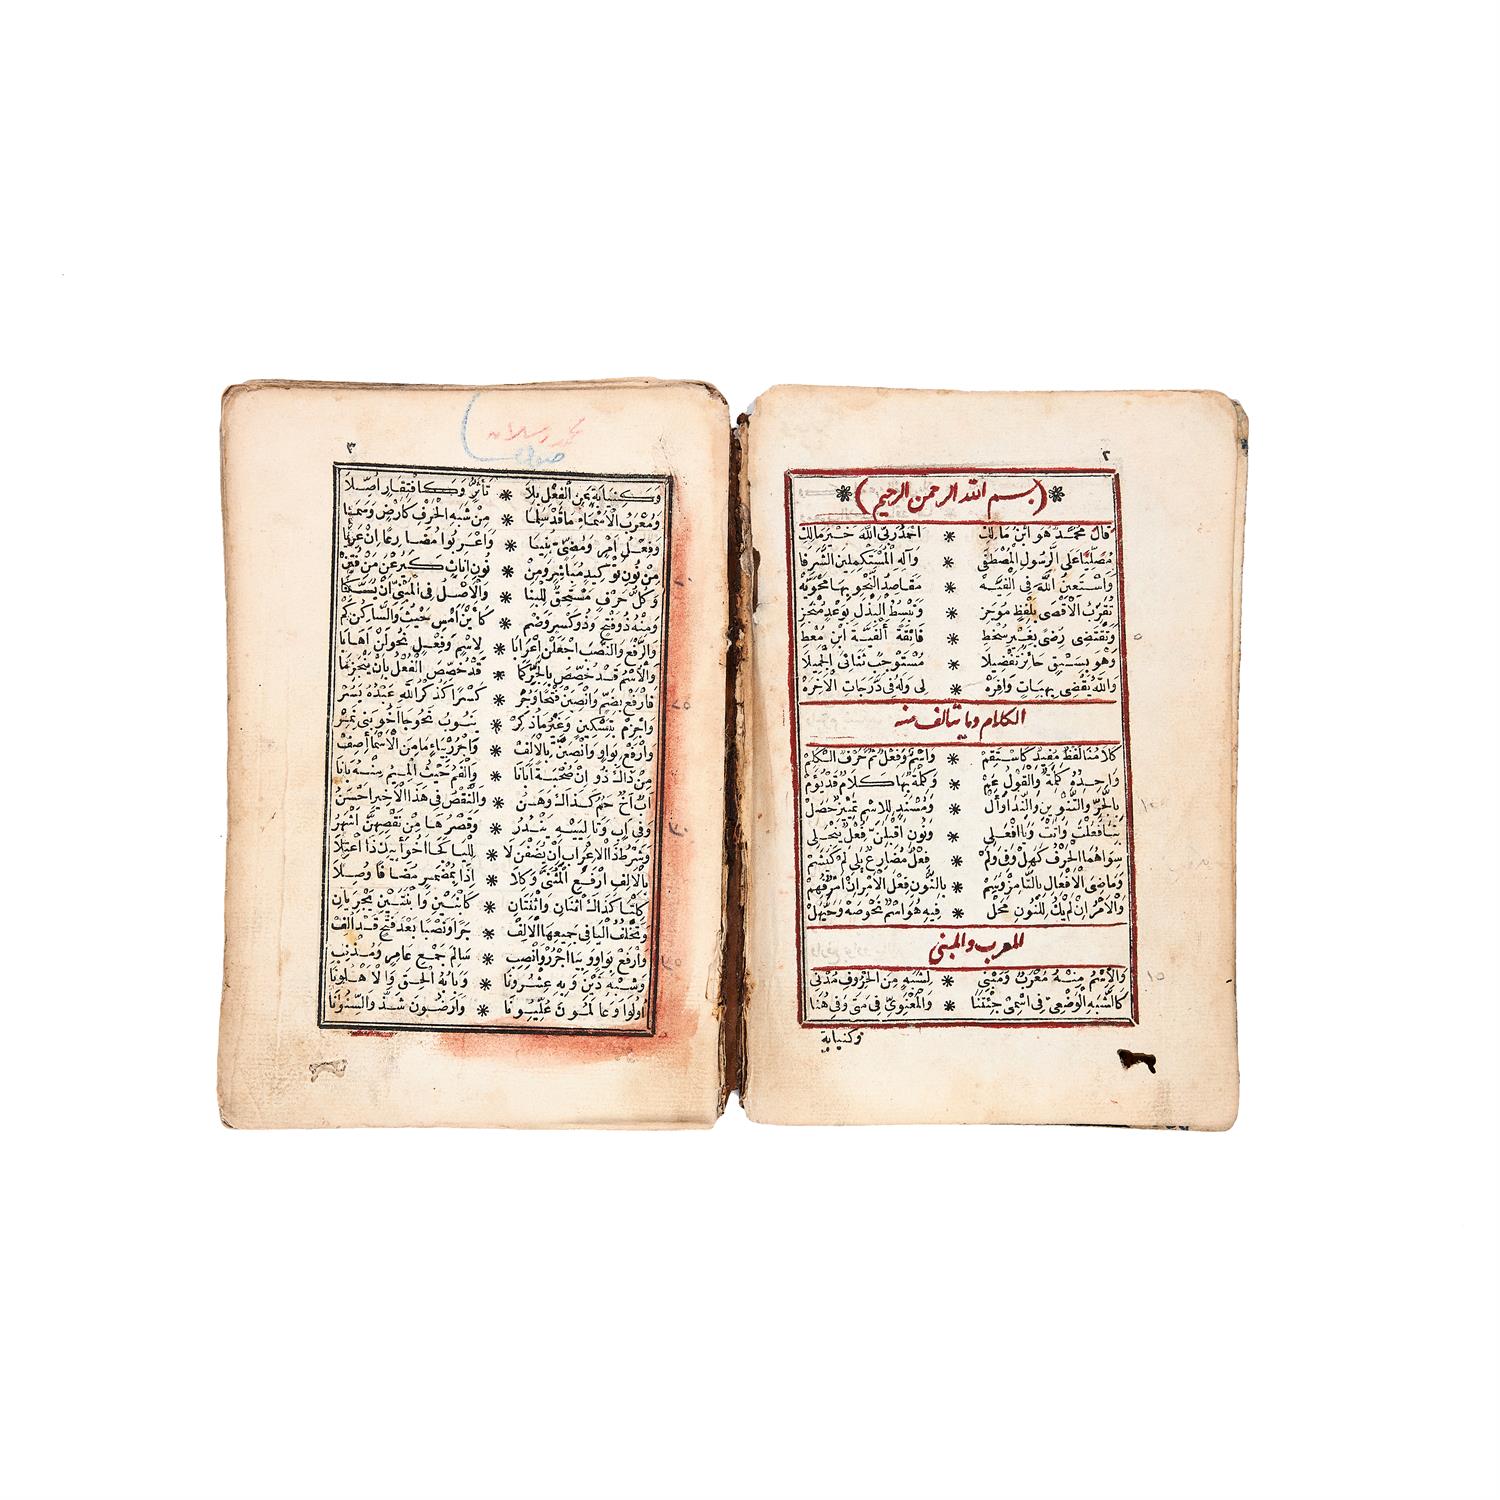 ٢
(بسم الله الرحمن الرحيم)
قَالَ مُحَمَّدٌ هُوَ ابْنُ مَالِكِ * أَحْمَدُ رَبِّي اللهَ خَيْرَ مَالِكِ
مُصَلِّيًا عَلَى الرَّسُولِ الْمُصْطَفَى * وَآلِهِ الْمُسْتَكْمِلِينَ الشَّرَفَا
وَأَسْتَعِينُ اللهَ فِي أَلْفِيَّهْ * مَقَاصِدُ النَّحْوِ بِهَا مَحْوِيَّهْ
تُقَرِّبُ الْأَقْصَى بِلَفْظٍ مُوجَزِ * وَتَبْسُطُ الْبَذْلَ بِوَعْدٍ مُنْجَزِ
وَتَقْتَضِي رِضًى بِغَيْرِ سُخْطِ * فَائِقَةً أَلْفِيَّةَ ابْنِ مُعْطِ
وَهْوَ بِسَبْقٍ حَائِزٌ تَفْضِيلَا * مُسْتَوْجِبٌ ثَنَائِيَ الْجَمِيلَا
وَاللهُ يَقْضِي بِهِبَاتٍ وَافِرَهْ * لِي وَلَهُ فِي دَرَجَاتِ الْآخِرَهْ
الكلام وما يتألف منه
كَلَامُنَا لَفْظٌ مُفِيدٌ كَاسْتَقِمْ * وَاسْمٌ وَفِعْلٌ ثُمَّ حَرْفٌ الْكَلِمْ
وَاحِدُهُ كَلِمَةٌ وَالْقَوْلُ عَمْ * وَكِلْمَةٌ بِهَا كَلَامٌ قَدْ يُؤَمْ
بِالْجَرِّ وَالتَّنْوِينِ وَالنِّدَا وَأَلْ * وَمُسْنَدٍ لِلِاسْمِ تَمْيِيزٌ حَصَلْ
بِتَا فَعَلْتَ وَأَتَتْ وَيَا افْعَلِي * وَنُونِ أَقْبِلَنَّ فِعْلٌ يَنْجَلِي
سِوَاهُمَا الْحَرْفُ كَهَلْ وَفِي وَلَمْ * فِعْلٌ مُضَارِعٌ يَلِي لَمْ كَيَشَمْ
وَمَاضِيَ الْأَفْعَالِ بِالتَّا مِزْ وَسِمْ * بِالنُّونِ فِعْلَ الْأَمْرِ إِنْ أَمْرٌ فُهِمْ
وَالْأَمْرُ إِنْ لَمْ يَكُ لِلنُّونِ مَحَلْ * فِيهِ هُوَ اسْمٌ نَحْوُ صَهْ وَحَيَّهَلْ
المعرب والمبنى
وَالِاسْمُ مِنْهُ مُعْرَبٌ وَمَبْنِي * لِشَبَهٍ مِنَ الْحُرُوفِ مُدْنِي
كَالشَّبَهِ الْوَضْعِيِّ فِي اسْمَيْ جِئْتَنَا * وَالْمَعْنَوِيِّ فِي مَتَى وَفِي هُنَا
وكنيابة
٣
وَكَنِيَابَةٍ عَنِ الْفِعْلِ بِلَا * تَأَثُّرٍ وَكَافْتِقَارٍ أُصِّلَا
وَمُعْرَبُ الْأَسْمَاءِ مَا قَدْ سَلِمَا * مِنْ شَبَهِ الْحَرْفِ كَأَرْضٍ وَسَمَا
وَفِعْلُ أَمْرٍ وَمُضِيٍّ بُنِيَا * وَأَعْرَبُوا مُضَارِعًا إِنْ عَرِيَا
مِنْ نُونِ تَوْكِيدٍ مُبَاشِرٍ وَمِنْ * نُونِ إِنَاثٍ كَيَرُعْنَ مَنْ فُتِنْ
وَكُلُّ حَرْفٍ مُسْتَحِقٌّ لِلْبِنَا * وَالْأَصْلُ فِي الْمَبْنِيِّ أَنْ يُسَكَّنَا
وَمِنْهُ ذُو فَتْحٍ وَذُو كَسْرٍ وَضَمْ * كَأَيْنَ أَمْسِ حَيْثُ وَالسَّاكِنُ كَمْ
وَالرَّفْعَ وَالنَّصْبَ اجْعَلَنْ إِعْرَابَا * لِاسْمٍ وَفِعْلٍ نَحْوُ لَنْ أَهَابَا
وَالْاِسْمُ قَدْ خُصِّصَ بِالْجَرِّ كَمَا * قَدْ خُصِّصَ الْفِعْلُ بِأَنْ يَنْجَزِمَا
فَارْفَعْ بِضَمٍّ وَانْصِبَنْ فَتْحًا وَجُرْ * كَسْرًا كَذِكْرُ اللهِ عَبْدَهُ يَسُرْ
وَاجْزِمْ بِتَسْكِينٍ وَغَيْرُ مَا ذُكِرْ * يَنُوبُ نَحْوُ جَا أَخُو بَنِي نَمِرْ
وَارْفَعْ بِوَاوٍ وَانْصِبَنَّ بِالْأَلِفْ * وَاجْرُرْ بِيَاءٍ مَا مِنَ الْأَسْمَا أَصِفْ
مِنْ ذَاكَ ذُو إِنْ صُحْبَةً أَبَانَا * وَالْفَمُ حَيْثُ الْمِيمُ مِنْهُ بَانَا
أَبٌ أَخٌ حَمٌ كَذَاكَ وَهَنُ * وَالنَّقْصُ فِي هَذَا الْأَخِيرِ أَحْسَنُ
وَفِي أَبٍ وَتَالِيَيْهِ يَنْدُرُ * وَقَصْرُهَا مِنْ نَقْصِهِنَّ أَشْهَرُ
وَشَرْطُ ذَا الْإِعْرَابِ أَنْ يُضَفْنَ لَا * لِلْيَا كَجَا أَخُو أَبِيكَ ذَا اعْتِلَا
بِالْأَلِفِ ارْفَعِ الْمُثَنَّى وَكِلَا * إِذَا بِمُضْمَرٍ مُضَافًا وُصِلَا
كِلْتَا كَذَاكَ اثْنَانِ وَاثْنَتَانِ * كَابْنَيْنِ وَابْنَتَيْنِ يَجْرِيَانِ
وَتَخْلُفُ الْيَا فِي جَمِيعِهَا الْأَلِفْ * جَرًّا وَنَصْبًا بَعْدَ فَتْحٍ قَدْ أُلِفْ
وَارْفَعْ بِوَاوٍ وَبِيَا اجْرُرْ وَانْصِبِ * سَالِمَ جَمْعِ عَامِرٍ وَمُذْنِبِ
وَشِبْهِ ذَيْنِ وَبِهِ عِشْرُونَا * وَبَابُهُ أُلْحِقَ وَالْأَهْلُونَا
أُولُو وَعَالَمُونَ عِلِّيُّونَا * وَأَرَضُونَ شَذَّ وَالسِّنُونَا